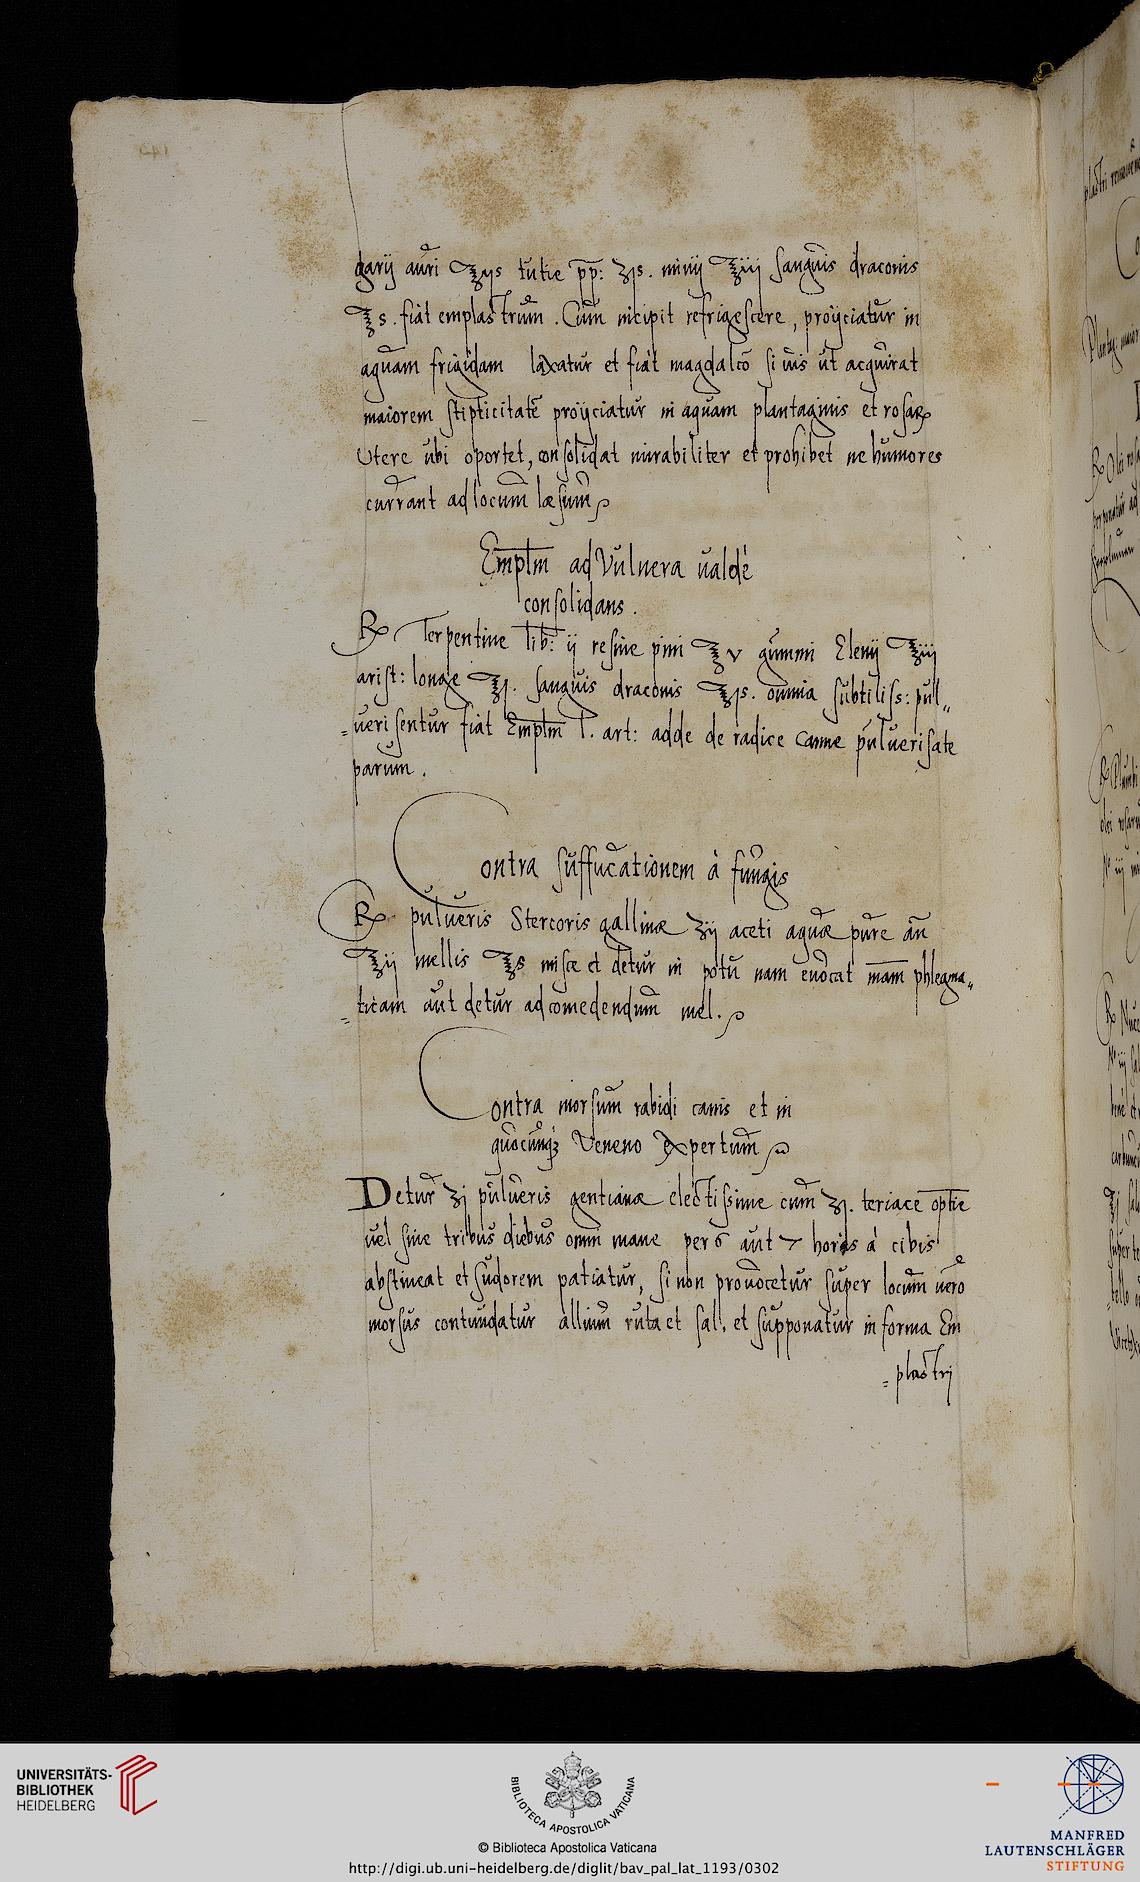 garij auri ℥ijs tutie pp: ʒis. minij ℥iij sanguis draconis
℥s. fiat emplastrum. Cum incipit refrigescere, proijciatur in
aquam frigidam laxatur et fiat magdaleo si uis ut acquirat
maiorem stipticitatē proijciatur in aquam plantaginis et rosaꝝ
Utere ubi oportet, consolidat mirabiliter et prohibet ne humores
currant ad locum læsum
Emplm ad Vulnera ualdè
consolidans.
℞ Terpentine lib: ij resine pini ℥v gummi Elenij ℥iij
arist: longe ℥j. sanguis draconis ℥is. omnia subtiliss: pul„
=uerisentur fiat Emplm l. art: adde de radice canne puluerisate
parum.
Contra suffucationem à fungis
℞ pulueris Stercoris gallinæ ʒij aceti aquæ pure añ
℥ij mellis ℥s misce et detur in potu nam euocat mam phlegma„
=ticam aut detur ad comedendum mel.
Contra morsum rabidi canis et in
quocunqꝫ Veneno expertum
Detur ʒj pulueris gentianæ electissime cum ʒj. teriace optie
uel sine tribus diebus omni mane per 6 aut 7 horas à cibis
abstineat et sudorem patiatur, si non prouocetur super locum uero
morsus contundatur allium ruta et sal, et supponatur in forma Em
=plastrij
UNIVERSITÄTS-
BIBLIOTHEK
HEIDELBERG
BIBLIOTECA APOSTOLICA VATICANA
© Biblioteca Apostolica Vaticana
http://digi.ub.uni-heidelberg.de/diglit/bav_pal_lat_1193/0302
MANFRED
LAUTENSCHLÄGER
STIFTUNG